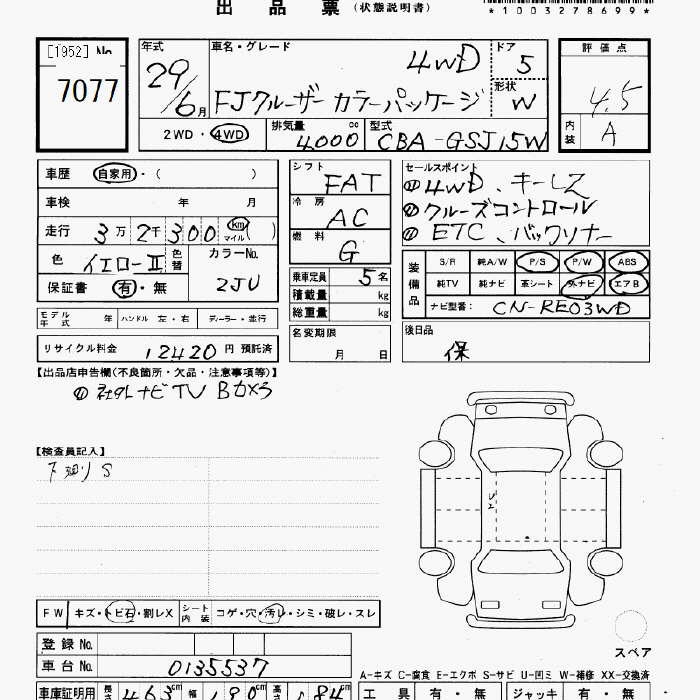 出品票 (状態説明書)
*1003278699*
[1952] No.
7077
年式 29/6月
車名・グレード 4WD
FJクルーザー カラーパッケージ
ドア 5
形状 W
評価点 4.5
内装 A
2WD・4WD 排気量 4000 cc 型式 CBA-GSJ15W
車歴 自家用・( )
車検 年 月
走行 3万2千300 km マイル ( )
色 イエローII 色替 カラーNo. 2JU
保証書 有・無
シフト FAT
冷房 AC
燃料 G
乗車定員 5名
積載量 kg
総重量 kg
セールスポイント
① 4WD、キーレス
② クルーズコントロール
③ ETC、バックソナー
装備品 S/R 純A/W P/S P/W ABS
純TV 純ナビ 革シート 外ナビ エアB
ナビ型番: CN-RE03WD
モデル年式 年 ハンドル 左・右 ディーラー・並行
名変期限 月 日
後日品 保
リサイクル料金 12420 円 預託済
【出品店申告欄(不良箇所・欠品・注意事項等)】
① 社外ナビTV
【検査員記入】
下廻りS
FW キズ・トビ石・割レX シート内装 コゲ・穴・汚レ・シミ・破レ・スレ
登録No.
車台No. 0135537
スペア
A-キズ C-腐食 E-エクボ S-サビ U-凹ミ W-補修 XX-交換済
車庫証明用 長さ 463cm 幅 190cm 高さ 184cm
工具 有・無 ジャッキ 有・無